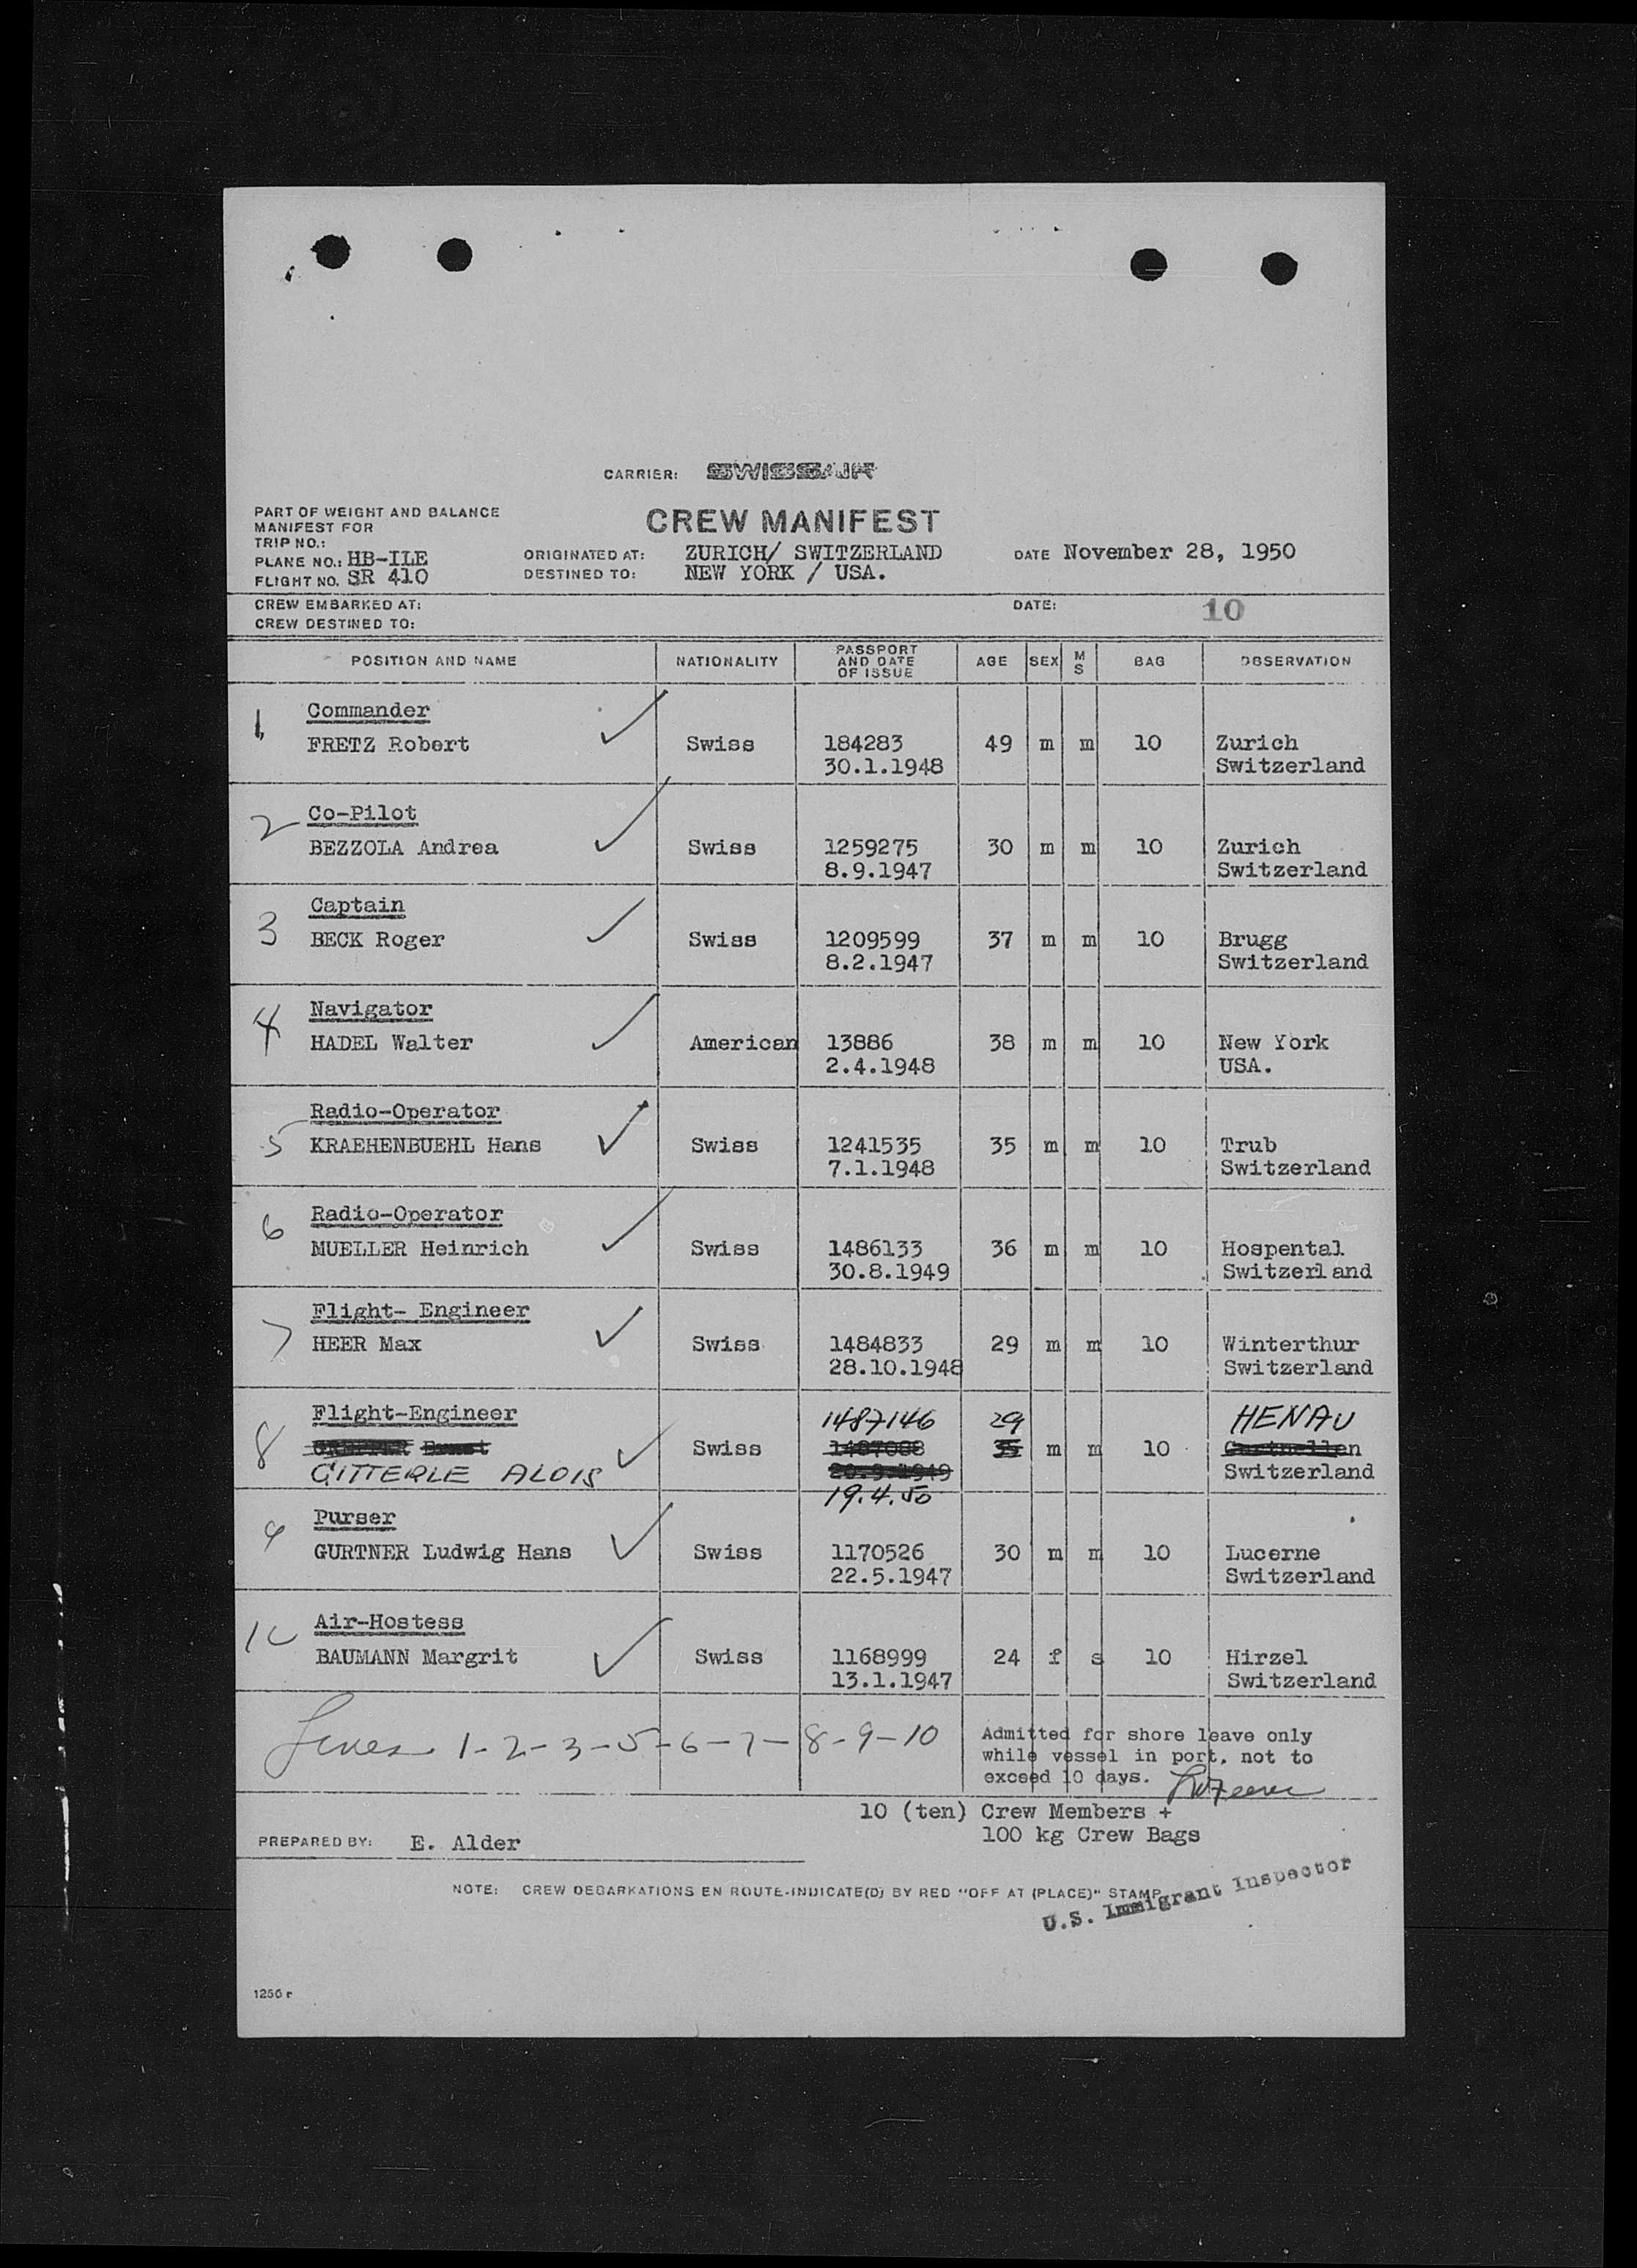 CARRIER: SWISSAIR
PART OF WEIGHT AND BALANCE
MANIFEST FOR
TRIP NO.:
PLANE NO.: HB-ILE
FLIGHT NO. SR 410
CREW MANIFEST
ORIGINATED AT: ZURICH/ SWITZERLAND
DESTINED TO: NEW YORK / USA.
DATE November 28, 1950
CREW EMBARKED AT:
CREW DESTINED TO:
DATE:
10
POSITION AND NAME NATIONALITY PASSPORT AND DATE OF ISSUE AGE SEX M S BAG OBSERVATION
1, Commander
FRETZ Robert Swiss 184283 49 m m 10 Zurich
30.1.1948 Switzerland
2 Co-Pilot
BEZZOLA Andrea Swiss 1259275 30 m m 10 Zurich
8.9.1947 Switzerland
3 Captain
BECK Roger Swiss 1209599 37 m m 10 Brugg
8.2.1947 Switzerland
4 Navigator
HADEL Walter American 13886 38 m m 10 New York
2.4.1948 USA.
5 Radio-Operator
KRAEHENBUEHL Hans Swiss 1241535 35 m m 10 Trub
7.1.1948 Switzerland
6 Radio-Operator
MUELLER Heinrich Swiss 1486133 36 m m 10 Hospental
30.8.1949 Switzerland
7 Flight- Engineer
HEER Max Swiss 1484833 29 m m 10 Winterthur
28.10.1948 Switzerland
8 Flight-Engineer 1487146 29 HENAU
Swiss 35 m m 10
GITTERLE ALOIS Switzerland
19.4.50
9 Purser
GURTNER Ludwig Hans Swiss 1170526 30 m m 10 Lucerne
22.5.1947 Switzerland
10 Air-Hostess
BAUMANN Margrit Swiss 1168999 24 f s 10 Hirzel
13.1.1947 Switzerland
Lines 1-2-3-5-6-7-8-9-10
Admitted for shore leave only
while vessel in port, not to
exceed 10 days.
10 (ten) Crew Members +
100 kg Crew Bags
PREPARED BY: E. Alder
NOTE: CREW DEBARKATIONS EN ROUTE-INDICATE(D) BY RED "OFF AT (PLACE)" STAMP
U.S. Immigrant Inspector
1256 r